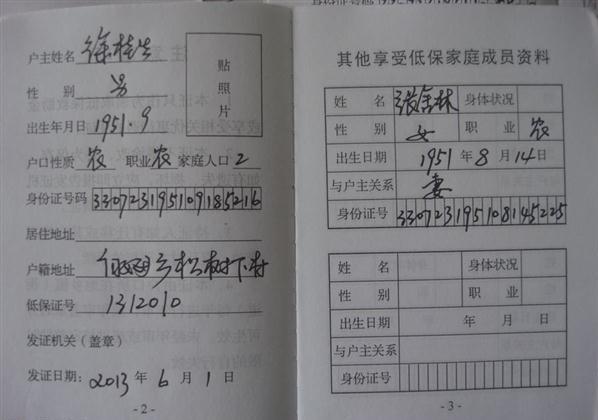 户主姓名 徐桂生
性 别 男
贴照片
出生年月日 1951.9
户口性质 农 职业 农 家庭人口 2
身份证号码 330723195109185216
居住地址
户籍地址 松树下村
低保证号 1312010
发证机关(盖章)
发证日期: 2013 年 6 月 1 日
- 2 -
其他享受低保家庭成员资料
姓 名 张金林 身体状况
性 别 女 职 业 农
出生日期 1951 年 8 月 14 日
与户主关系 妻
身份证号 330723195108145225
姓 名 身体状况
性 别 职 业
出生日期 年 月 日
与户主关系
身份证号
- 3 -